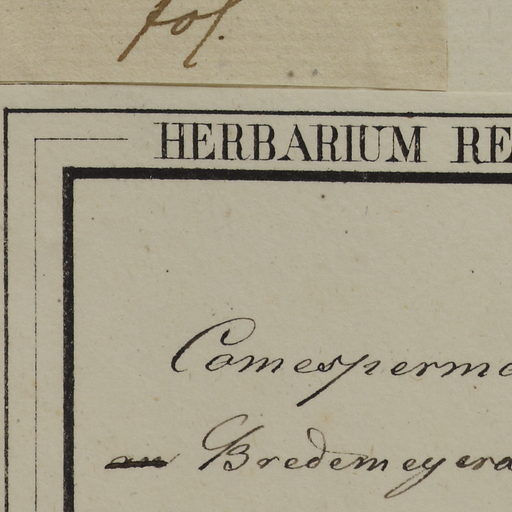 fol.
HERBARIUM RE
Comesperma
an Bredemeyera